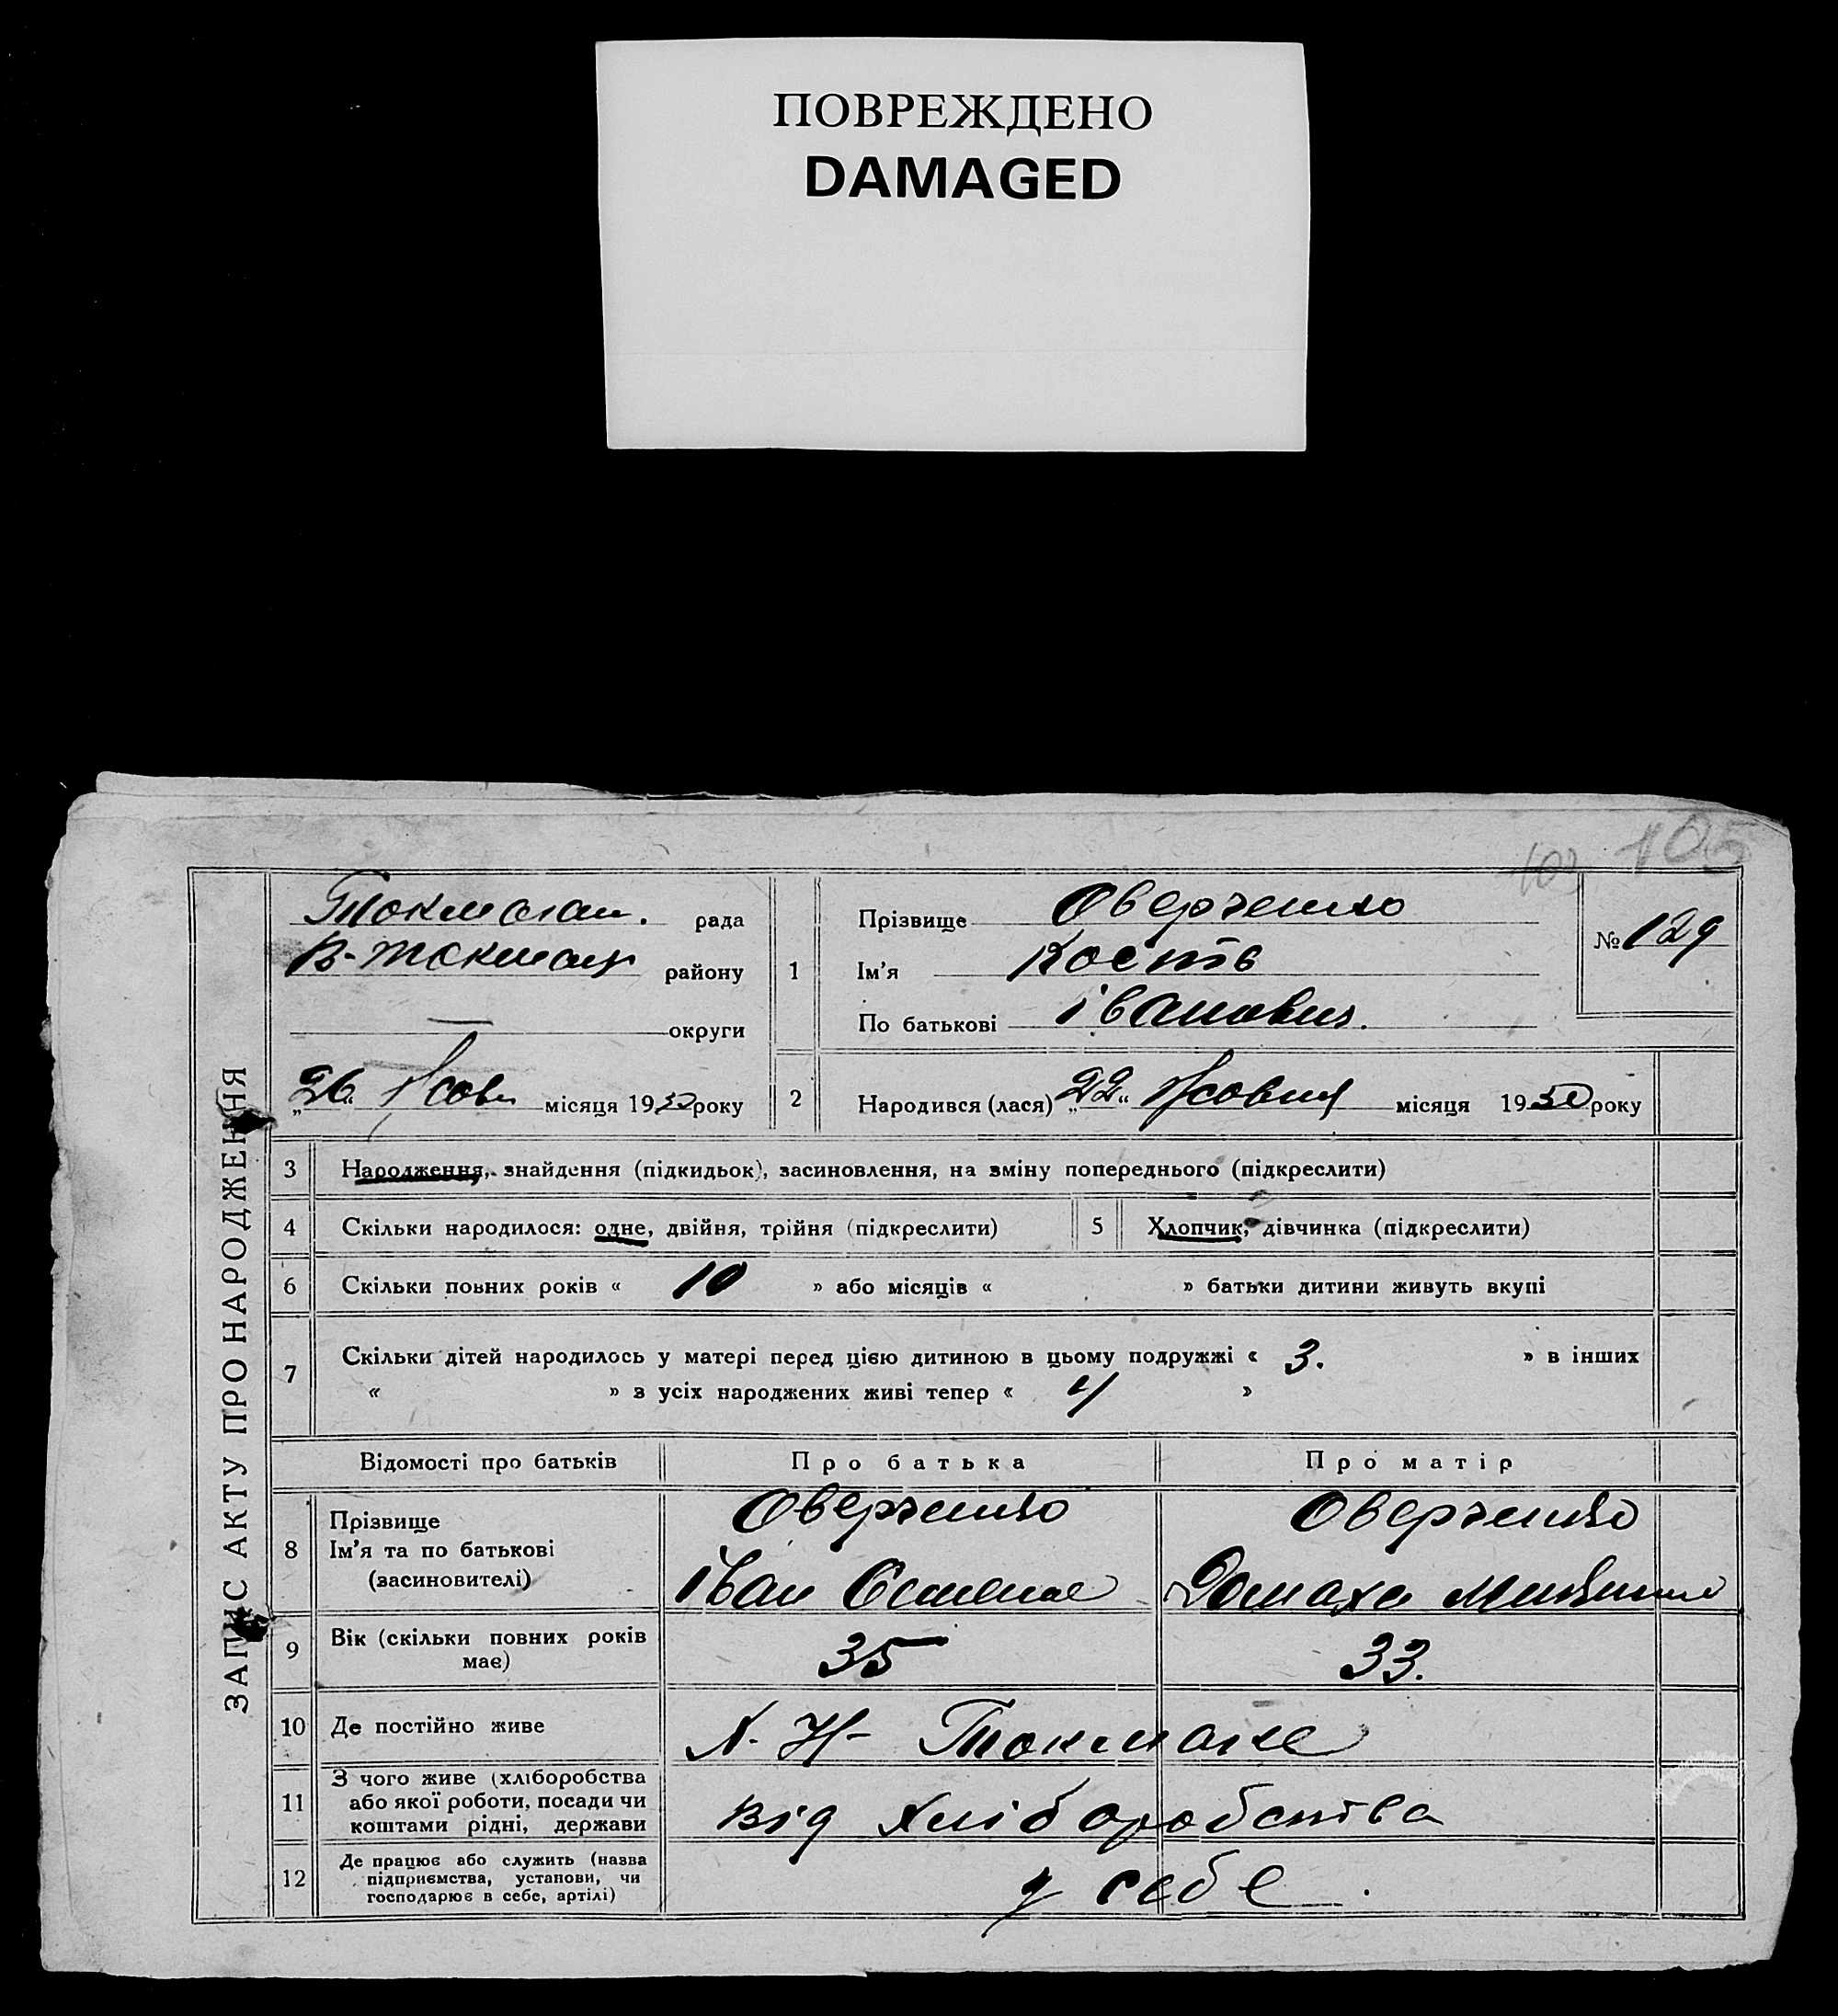 ПОВРЕЖДЕНО
DAMAGED
103 105
ЗАПИС АКТУ ПРО НАРОДЖЕННЯ
Токмасан. рада
В-Токмац району
— округи
„26“ Жовт місяця 1930 року
1
Прізвище Оверченко
Ім'я Костів
По батькові іванович.
№ 129
2 Народився (лася) „22“ Жовтня місяця 1930 року
3 Народження, знайдення (підкидьок), засиновлення, на зміну попереднього (підкреслити)
4 Скільки народилося: одне, двійня, трійня (підкреслити) 5 Хлопчик, дівчинка (підкреслити)
6 Скільки повних років « 10 » або місяців « » батьки дитини живуть вкупі
7 Скільки дітей народилось у матері перед цією дитиною в цьому подружжі « 3. » в інших
« » з усіх народжених живі тепер « 4 »
Відомості про батьків Про батька Про матір
8 Прізвище
Ім'я та по батькові
(засиновителі)
Оверченко Оверченко
іван Домаха
9 Вік (скільки повних років
має)
35 33.
10 Де постійно живе Токмаке
11 З чого живе (хліборобства
або якої роботи, посади чи
коштами рідні, держави
від хліборобства
12 Де працює або служить (назва
підприємства, установи, чи
господарює в себе, артілі)
у себе.